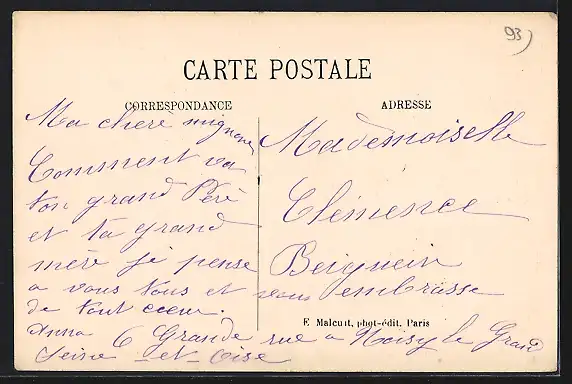 93)
CARTE POSTALE
CORRESPONDANCE
ADRESSE
Ma chère mignonne
Comment va
ton grand Père
et ta grand
mère je pense
a vous tous et vous embrasse
de tout cœur.
Anna 6 Grande rue a Noisy le Grand
Seine-et-Oise
Mademoiselle
Clémence
Beiguein
F. Malcuit, phot-édit. Paris